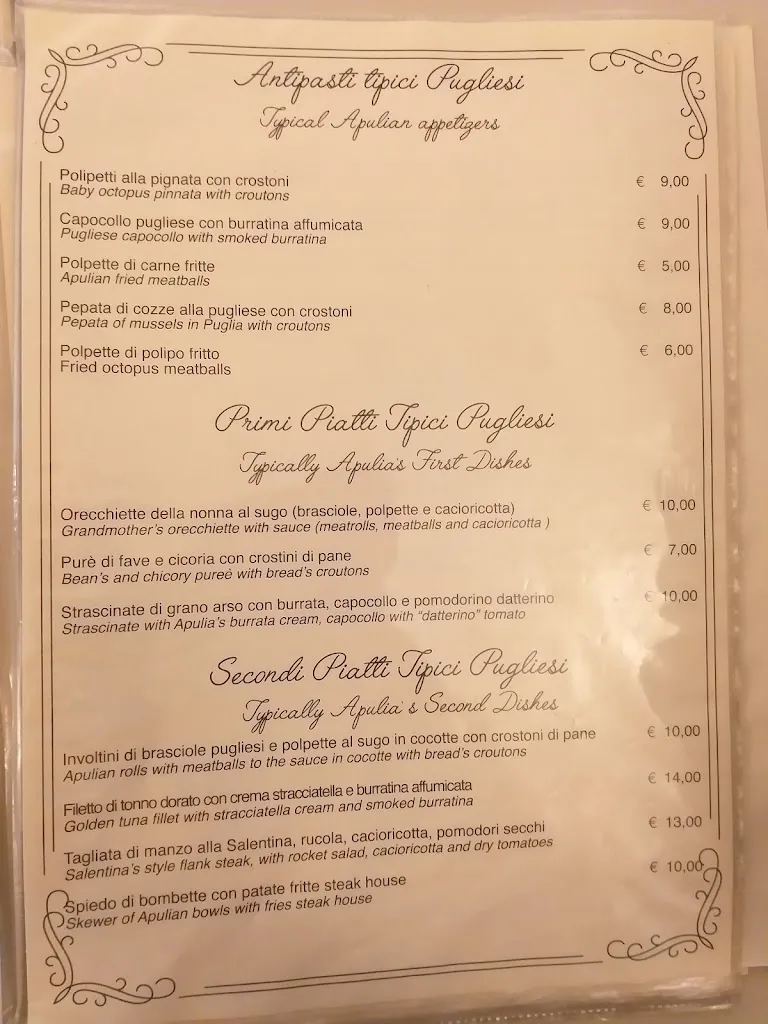 Antipasti tipici Pugliesi
Typical Apulian appetizers
Polipetti alla pignata con crostoni € 9,00
Baby octopus pinnata with croutons
Capocollo pugliese con burratina affumicata € 9,00
Pugliese capocollo with smoked burratina
Polpette di carne fritte € 5,00
Apulian fried meatballs
Pepata di cozze alla pugliese con crostoni € 8,00
Pepata of mussels in Puglia with croutons
Polpette di polipo fritto € 6,00
Fried octopus meatballs
Primi Piatti Tipici Pugliesi
Typically Apulia's First Dishes
Orecchiette della nonna al sugo (brasciole, polpette e cacioricotta) € 10,00
Grandmother's orecchiette with sauce (meatrolls, meatballs and cacioricotta )
Purè di fave e cicoria con crostini di pane € 7,00
Bean's and chicory pureè with bread's croutons
Strascinate di grano arso con burrata, capocollo e pomodorino datterino € 10,00
Strascinate with Apulia's burrata cream, capocollo with "datterino" tomato
Secondi Piatti Tipici Pugliesi
Typically Apulia's Second Dishes
Involtini di brasciole pugliesi e polpette al sugo in cocotte con crostoni di pane € 10,00
Apulian rolls with meatballs to the sauce in cocotte with bread's croutons
Filetto di tonno dorato con crema stracciatella e burratina affumicata € 14,00
Golden tuna fillet with stracciatella cream and smoked burratina
Tagliata di manzo alla Salentina, rucola, cacioricotta, pomodori secchi € 13,00
Salentina's style flank steak, with rocket salad, cacioricotta and dry tomatoes
Spiedo di bombette con patate fritte steak house € 10,00
Skewer of Apulian bowls with fries steak house